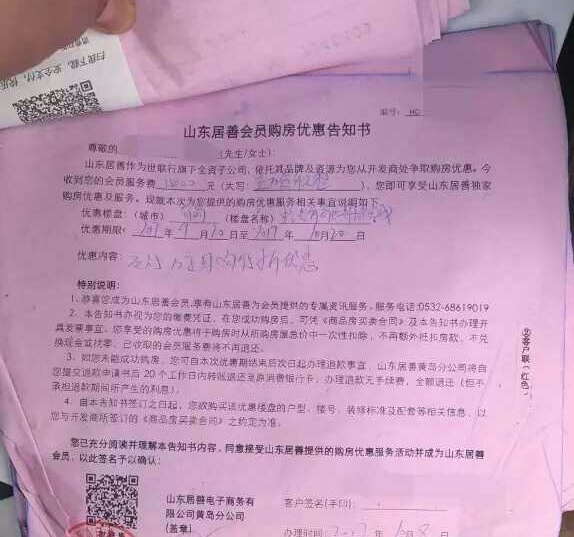 扫我下载，安全支付，快乐
编号：HC
山东居善会员购房优惠告知书
尊敬的 (先生/女士)：
山东居善作为世联行旗下全资子公司，依托其品牌及资源为您从开发商处争取购房优惠。今
收到您的会员服务费 元（大写： ），您即可享受山东居善独家
购房优惠及服务。现就本次为您提供的购房优惠服务相关事宜说明如下。
优惠楼盘：（城市） （楼盘名称）
优惠期限： 年 9 月 10 日至 2017 年 10 月 20 日
优惠内容：
特别说明：
1、恭喜您成为山东居善会员，享有山东居善为会员提供的专属资讯服务。服务电话:0532-68619019
2、本告知书亦视为您的缴费凭证，在您成功购房后，可凭《商品房买卖合同》及本告知书办理开
具发票事宜。您享受的购房优惠将于购房时从所购房屋总价中一次性扣除，不再额外抵扣房款，不兑
换现金或找零。已收取的会员服务费将不再退还。
3、如您未能成功购房，您可自本次优惠期结束后次日起办理退款事宜，山东居善黄岛分公司将自
您提交退款申请书后20个工作日内转账退还至原消费银行卡，办理退款无手续费，全额退还（但不
承担退款期间所产生的利息）。
4、自本告知书签订之日起，您欲购买该优惠楼盘的户型、楼号、装修标准及配套等相关信息，以
您与开发商所签订的《商品房买卖合同》之约定为准。
您已充分阅读并理解本告知书内容，同意接受山东居善提供的购房优惠服务活动并成为山东居善
会员，以此签名予以确认：
山东居善电子商务有
限公司黄岛分公司
（盖章）
客户签名(手印)：
办理时间：2017 年 10 月 8 日
②客户联（红色）